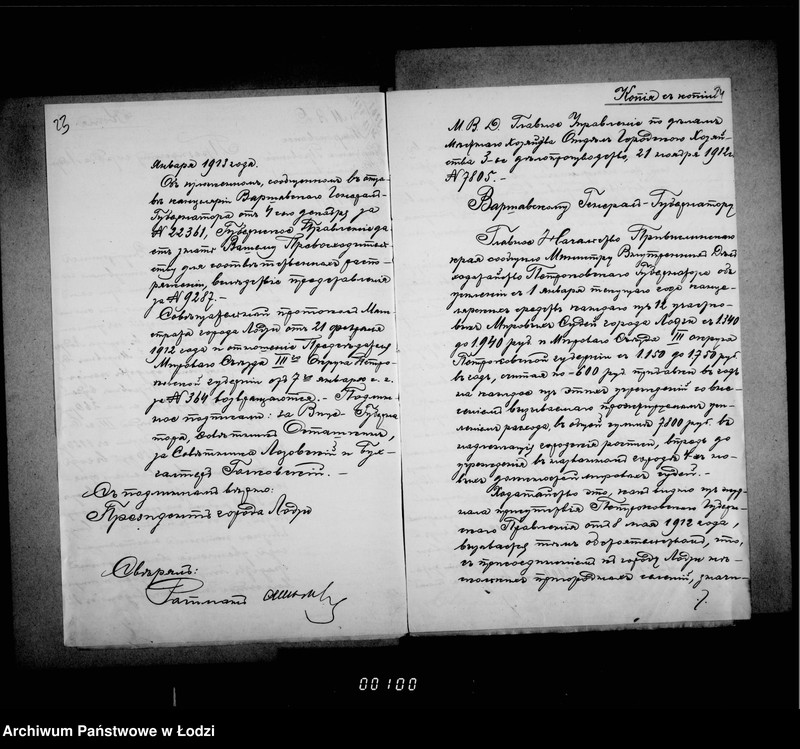 23
Января 1913 года.
Объ изложенномъ, сообщенномъ въ отзы-
въ канцеляріи Варшавскаго Генералъ-
Губернатора отъ 4 сего декабря за
№ 22361, Губернское Правленіе да-
етъ знать Вашему Превосходитель-
ству для соотвѣтственныхъ распо-
ряженій, вслѣдствіе представленія
за № 9287.-
Совѣщательный протоколъ Маги-
страта города Лодзи отъ 21 февраля
1912 года и отношеніе Предсѣдателя
Мирового Съѣзда III го Округа Петро-
ковской губерніи отъ 7 го января с. г.
за № 364 возвращаются.- Подлин-
ное подписали: за Вице-Губерна-
тора, Совѣтникъ
за Совѣтника Лозовскій и Бух-
галтеръ
Съ подлиннымъ вѣрно:
Президентъ города Лодзи
Свѣрялъ:
Ратманъ
Копія съ копіи 24
М. В. Д. Главное Управленіе по дѣламъ
Мѣстнаго Хозяйства Отдѣлъ Городского Хозяй-
ства 3-ое дѣлопроизводство, 21 ноября 1912 г.
№ 7805.-
Варшавскому Генералъ-Губернатору
Главное Начальство Привислинскаго
края сообщило Министру Внутреннихъ Дѣлъ
ходатайство Петроковскаго Губернатора объ
увеличеніи съ 1 января текущаго года канце-
лярскихъ средствъ каждаго изъ 12 участко-
выхъ Мировыхъ Судей города Лодзи съ 1340
до 1940 руб. и Мирового Съѣзда III округа
Петроковской губерніи съ 1150 до 1750 руб.
въ годъ, считая по-600 руб. прибавки въ годъ
на каждое изъ этихъ учрежденій со вне-
сеніемъ вызываемаго проектируемымъ уве-
личеніемъ расхода, въ общей суммѣ 7800 руб. въ
надлежащія городскія росписи, впредь до
учрежденія въ названномъ городѣ 4-хъ но-
выхъ должностей мировыхъ судей.-
Ходатайство это, какъ видно изъ жур-
нала присутствія Петроковскаго Губерн-
скаго Правленія отъ 8 мая 1912 года,
вызывается тѣмъ обстоятельствомъ, что,
съ присоединеніемъ къ городу Лодзи нѣ-
сколькихъ пригородныхъ селеній, значи-
00100
Archiwum Państwowe w Łodzi